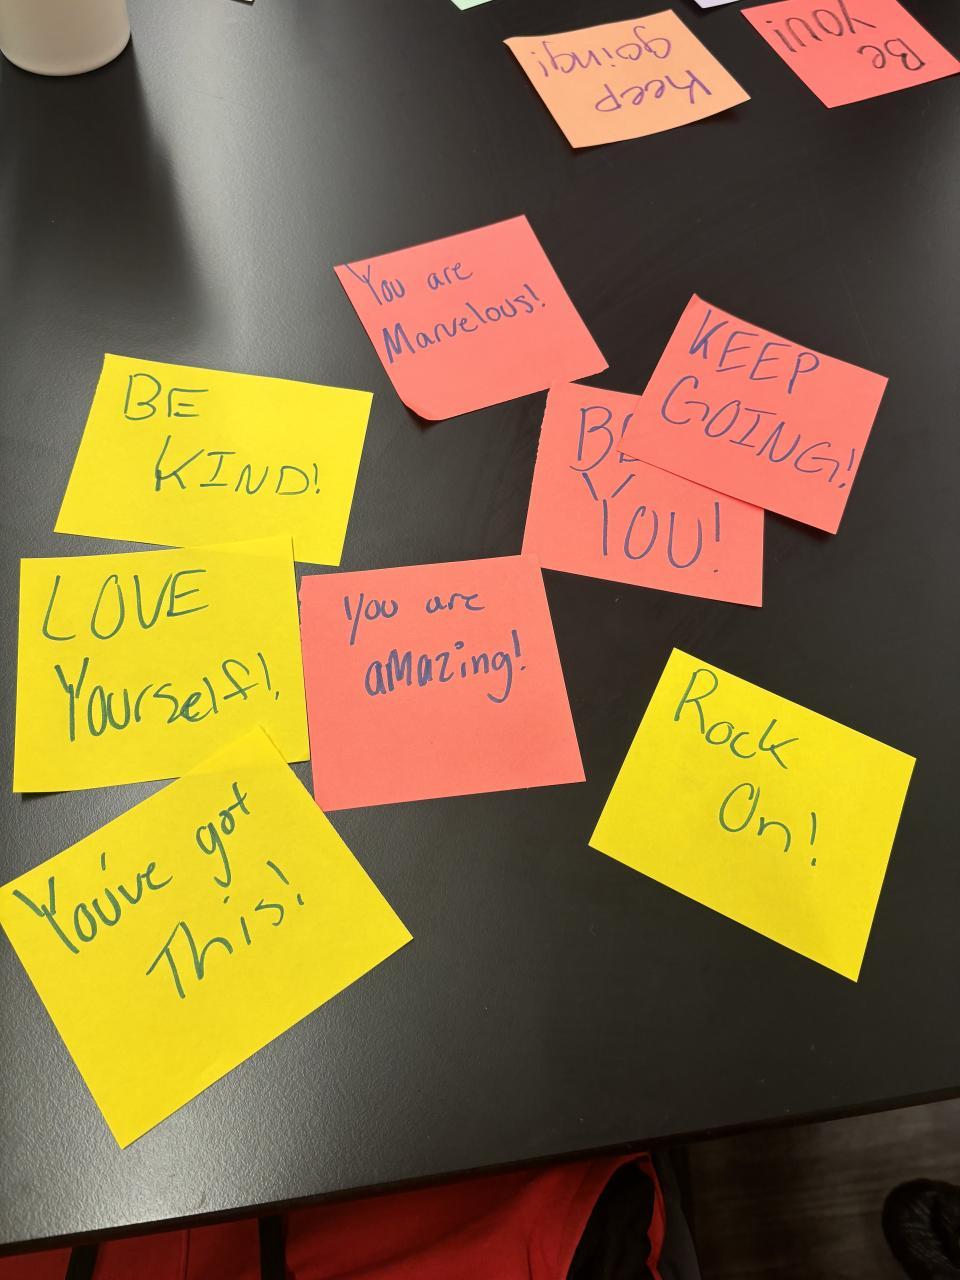 Keep
going!
Be
YOU!
You are
Marvelous!
KEEP
GOING!
BE
YOU!
BE
KIND!
LOVE
Yourself!
You are
aMazing!
Rock
On!
You've got
This!